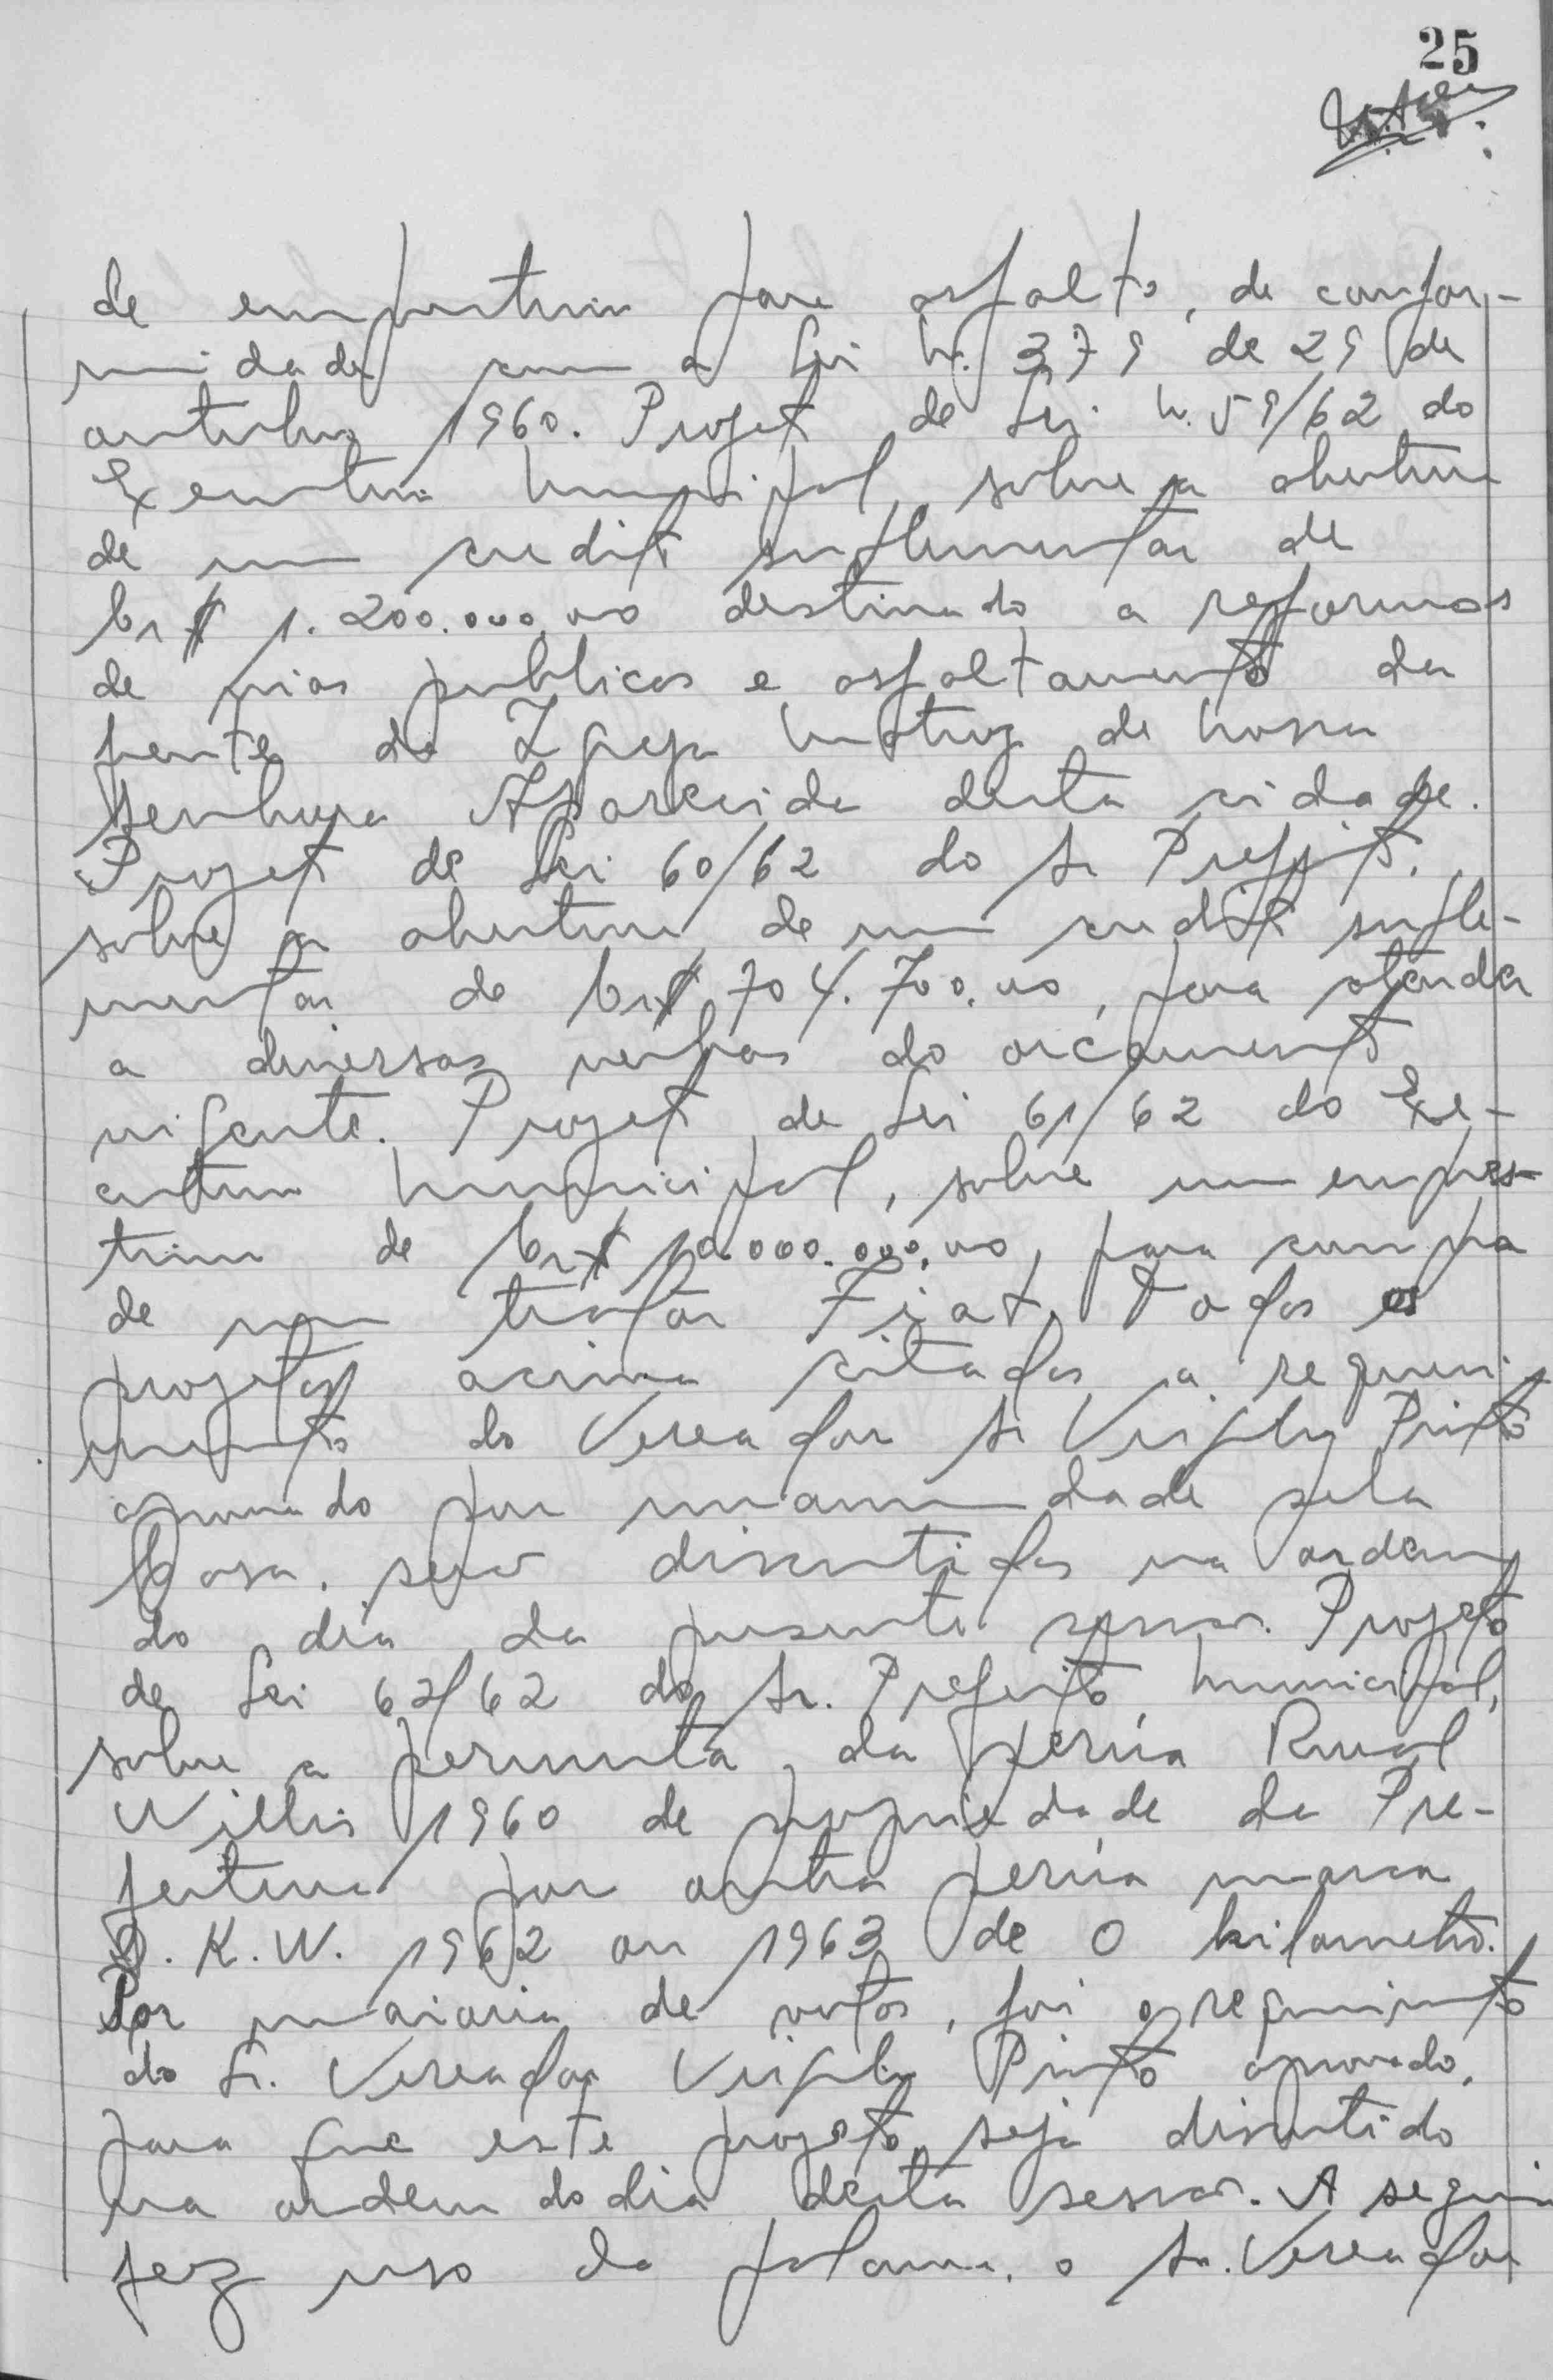 25
de emprestimo para asfalto, de confor-
midade com a Lei N. 379 de 29 de
outubro 1960. Projeto de Lei N. 59/62 do
Executivo Municipal, sobre a abertura
de um credito suplementar de
Cr$ 1.200.000,00 destinado a reformas
de vias publicas e asfaltamento da
frente da Igreja Matriz de Nossa
Senhora Aparecida desta cidade.
Projeto de Lei 60/62 do Sr Prefeito,
sobre a abertura de um credito suple-
mentar de Cr$ 704.700,00, para atender
a diversas verbas do orçamento
vigente. Projeto de Lei 61/62 do Exe-
cutivo Municipal, sobre um empres-
timo de Cr$ 10.000.000,00, para compra
de um trator Fiat. Todos os
projetos acima citados, a requeri-
mento do Vereador Sr Virgilio Pinto
aprovado por unanimidade pela
Casa, serão discutidos na ordem
do dia da presente sessão. Projeto
de Lei 62/62 do Sr. Prefeito Municipal,
sobre a permuta, da perua Rural
Willis 1960 de propriedade da Pre-
feitura por outra perua marca
D.K.W. 1962 ou 1963 de 0 kilometro.
Por maioria de votos, foi o requerimento
do Sr. Vereador Virgilio Pinto aprovado,
para que este projeto, seja discutido
na ordem do dia desta sessão. A seguir
fez uso da palavra, o Sr. Vereador